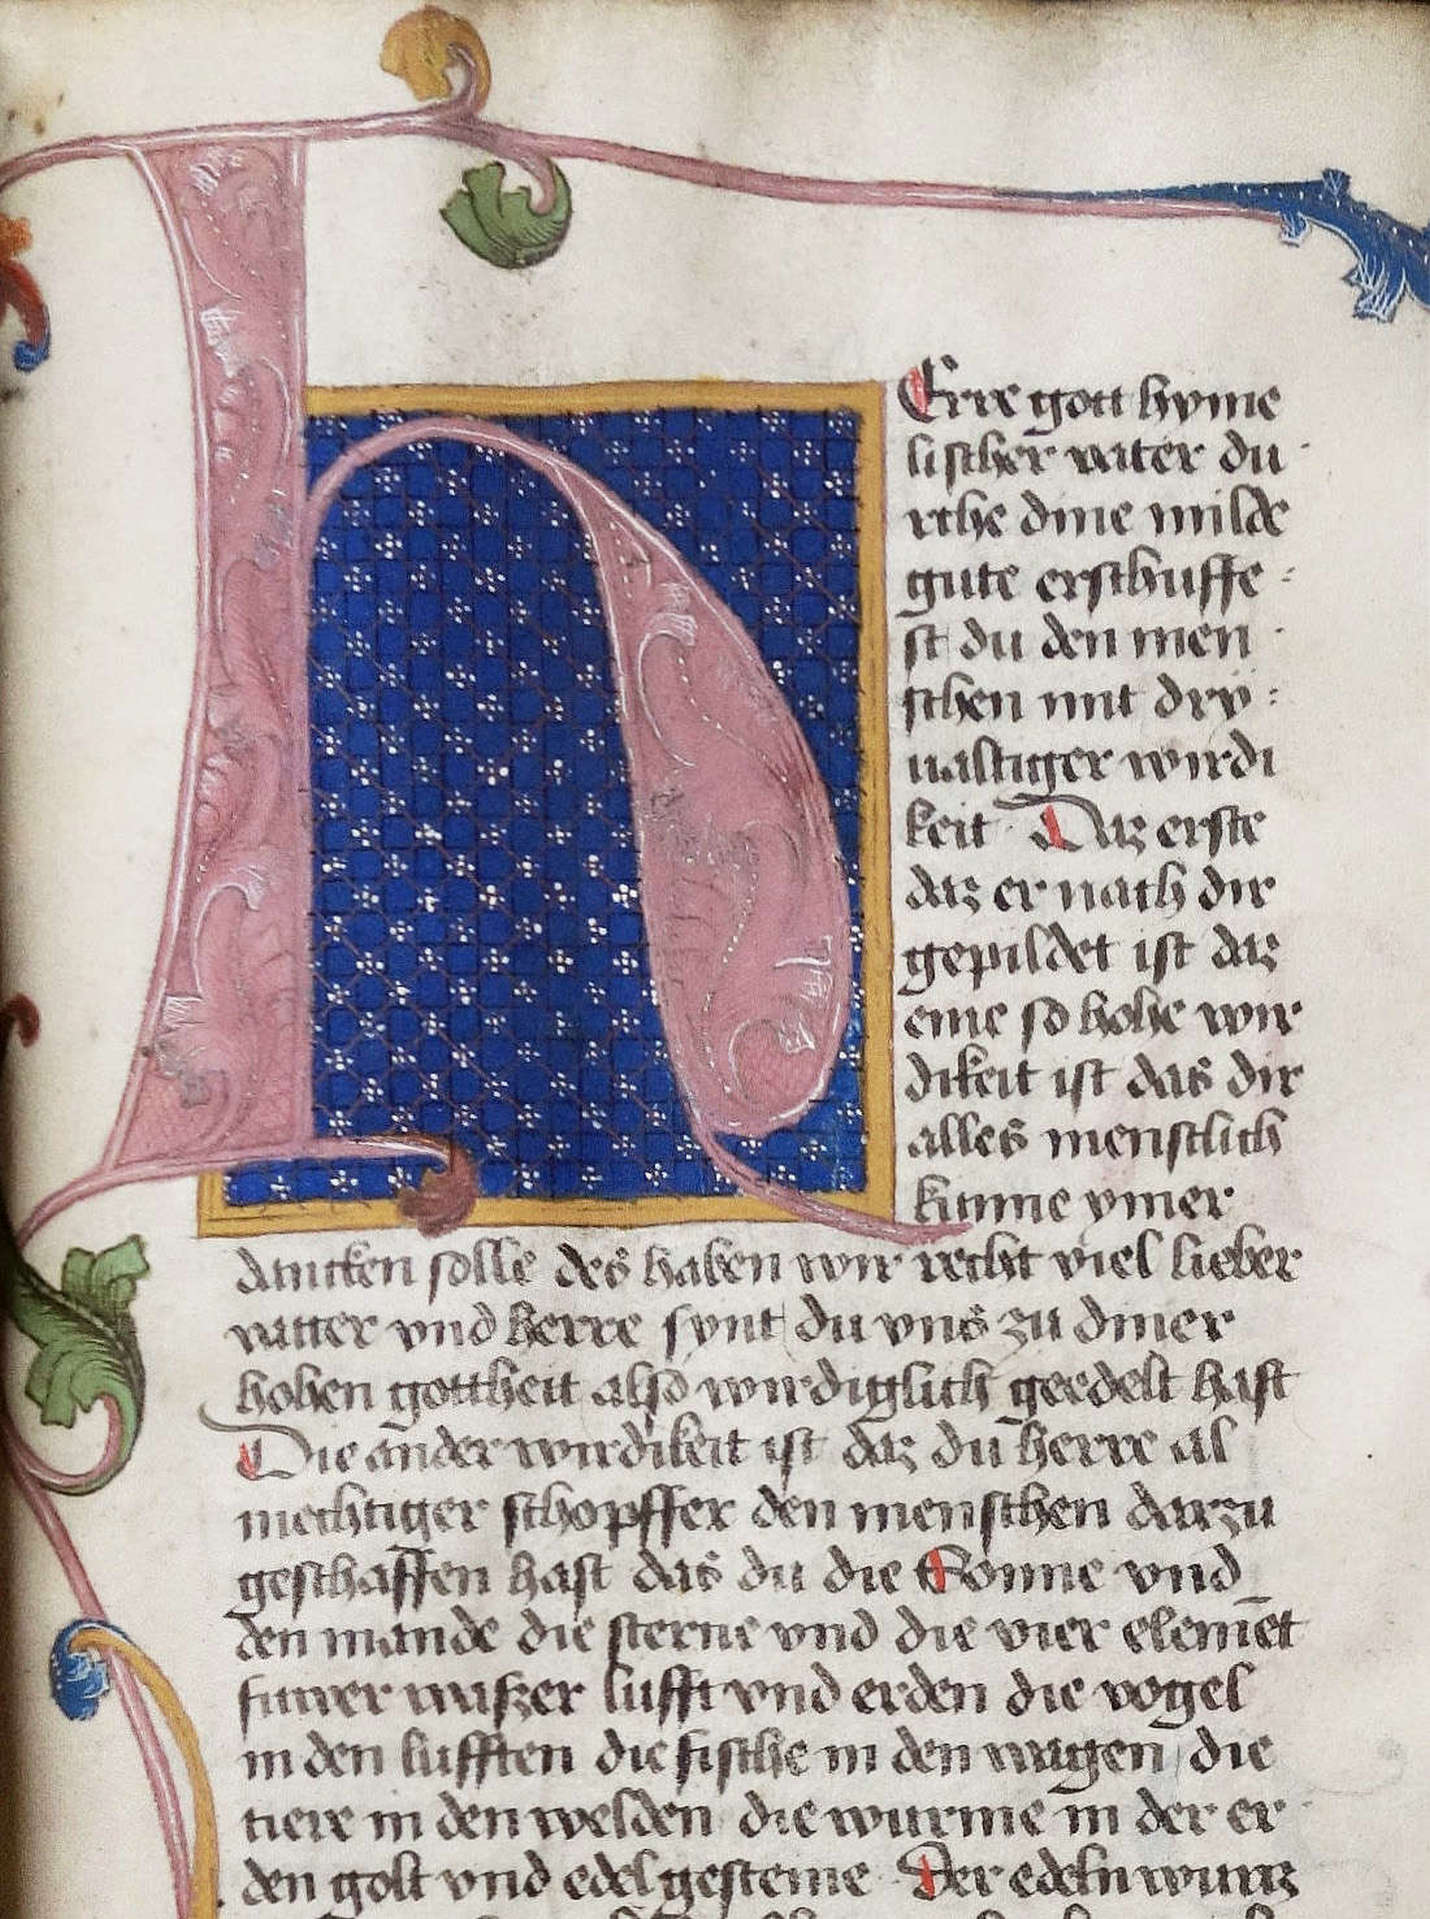 H
Erre gott hyme
lischer vatter du
rche dine milde
gute erschuffe
st du den men
schen mit dry
ualtiger wirdi
keit Daz erste
daz er nach dir
gepildet ist daz
eine so hohe wir
dikeit ist das dir
alles menschlich
kunne ymer
dancken solle des haben wir recht viel lieber
vatter vnd herre synt du vns zu diner
hohen gottheit also wirdiglich geedelt hast
Die ander wirdikeit ist daz du herre al
mechtiger schopffer den menschen darzu
geschaffen hast das du die Sonne vnd
den mande die sterne vnd die vier elemēt
fuwer waszer lufft vnd erden die vogel
in den lufften die fische in den wagen die
tiere in den welden die wurme in der er
den golt vnd edel gesteine Der edeln wurtz